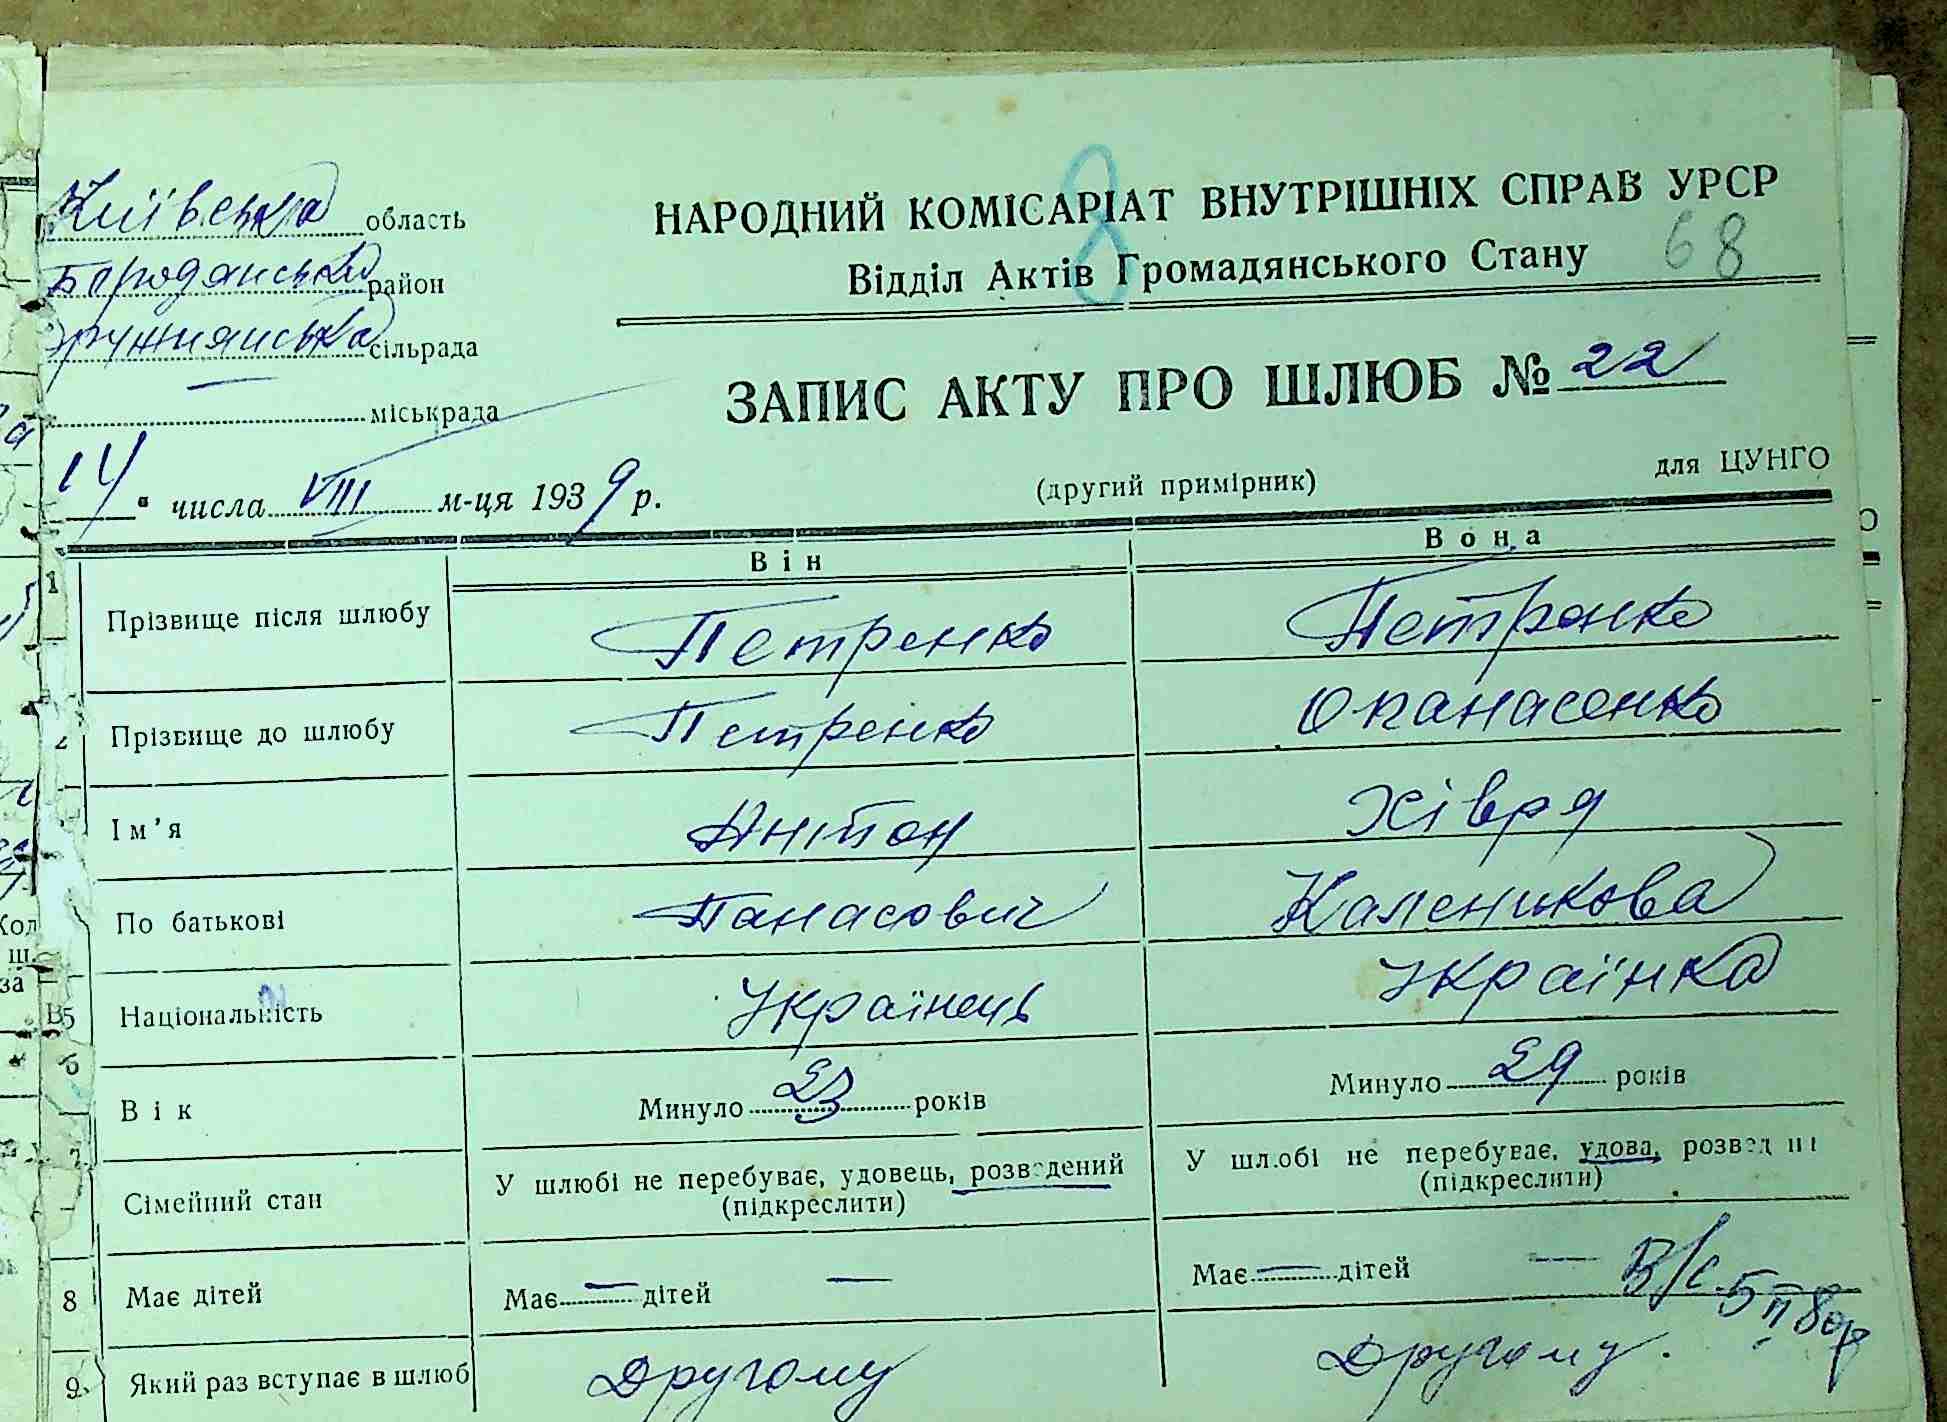 Київська область
Бородянський район
Дружнянська сільрада
— міськрада
НАРОДНИЙ КОМІСАРІАТ ВНУТРІШНІХ СПРАВ УРСР
8
Відділ Актів Громадянського Стану
68
ЗАПИС АКТУ ПРО ШЛЮБ № 22
14 " числа VIII м-ця 1939 р.
(другий примірник)
для ЦУНГО
Він Вона
1 Прізвище після шлюбу Петренко Петренко
2 Прізвище до шлюбу Петренко Опанасенко
Ім'я Антон Хівря
По батькові Панасович Каленикова
5 Національність Українець Українка
6 Вік Минуло 23 років Минуло 29 років
7 Сімейний стан У шлюбі не перебуває, удовець, розведений У шлюбі не перебуває, удова,
(підкреслити) (підкреслити)
8 Має дітей Має — дітей — Має — дітей —
В/с 5 II 80р
9 Який раз вступає в шлюб Другому Другому.